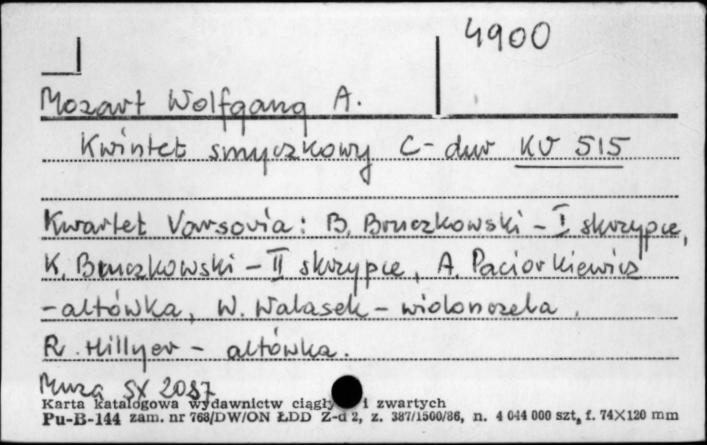 4900
Mozart Wolfgang A.
Kwintet smyczkowy C-dur KV 515
Kwartet Varsovia: B. Bruczkowski - I skrzypce,
K. Bruczkowski - II skrzypce, A. Paciorkiewicz
- altówka, W. Walasek - wiolonczela,
R. Hillyer - altówka.
Muza SX 2087
Karta katalogowa wydawnictw ciągły i zwartych
Pu-B-144 zam. nr 768/DW/ON ŁDD Z-d 2, z. 387/1500/86, n. 4 044 000 szt, f. 74X120 mm